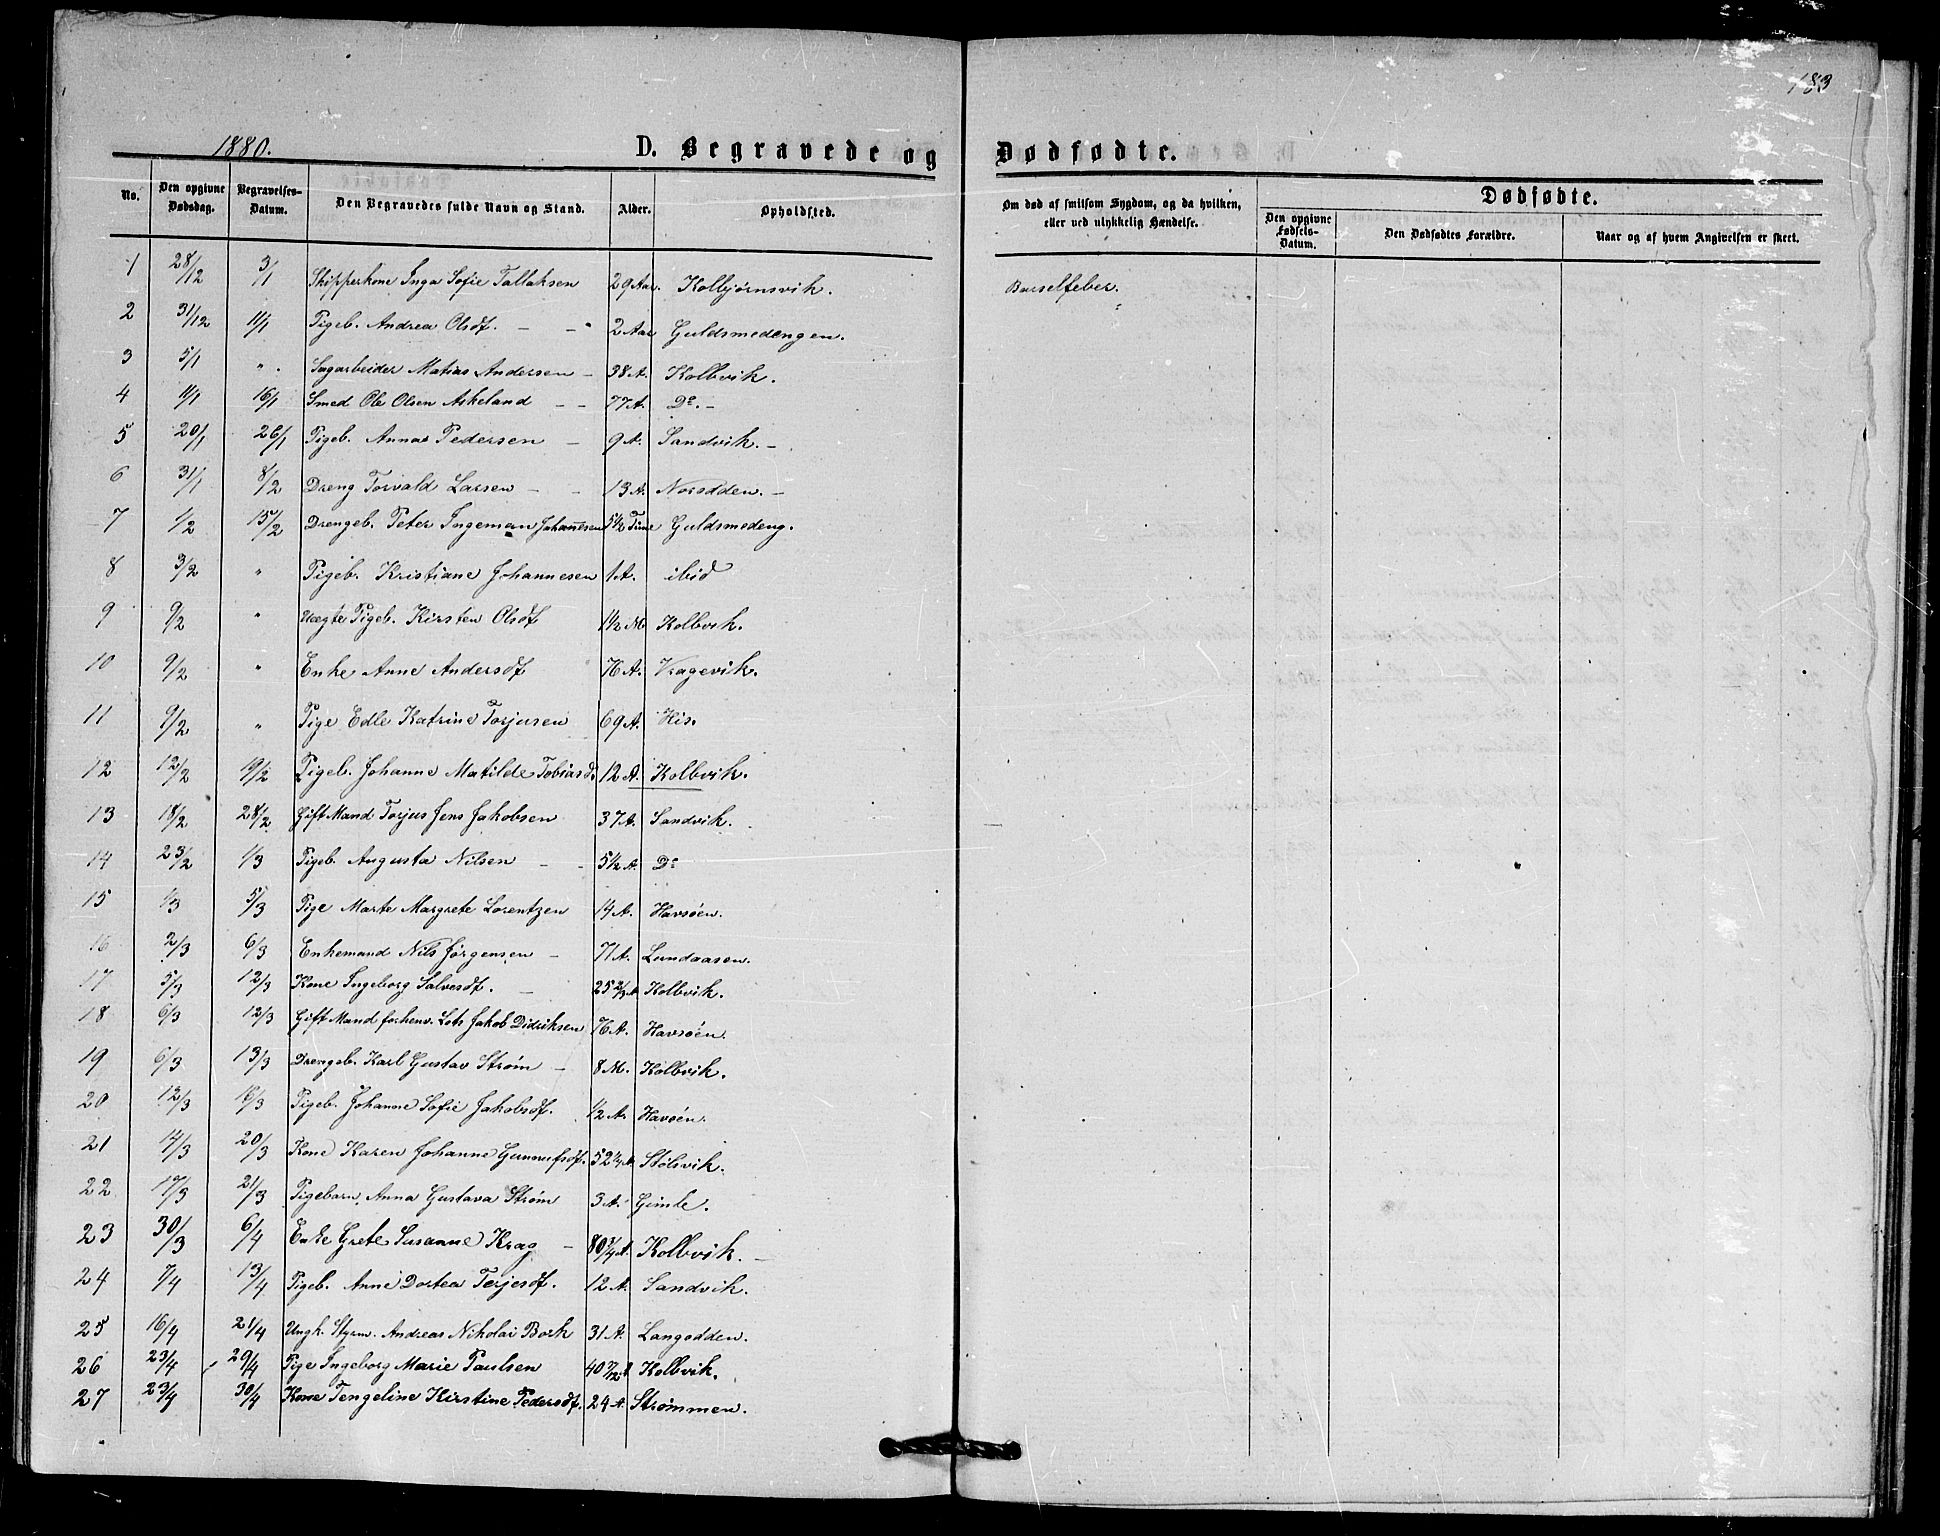 183
1880.
D. Begravede og Dødfødte.
No. Den opgivne Dødsdag. Begravelses-Datum. Den Begravedes fulde Navn og Stand. Alder. Opholdsted. Om død af smitsom Sygdom, og da hvilken, eller ved ulykkelig Hændelse. Dødfødte. Den opgivne Fødsels-Datum. Den Dødfødtes Forældre. Naar og af hvem Angivelsen er skeet.
1 28/12 3/1 Skipperkone Inga Sofie Tallaksen 29 Aar. Kolbjørnsvik. Barselfeber.
2 31/12 11/1 Pigeb. Andrea Olsdt. - - 2 Aar Guldsmedengen.
3 5/1 " . Sagarbeider Matias Andersen - 38 A. Kolbvik.
4 11/1 16/1 Smed Ole Olsen Askeland - - 77 A. Do. -
5 20/1 26/1 Pigeb. Anna Pedersen - 9 A. Sandvik. -
6 31/1 8/2 Dreng Torvald Larsen - - 13 A. Norodden. -
7 1/2 15/2 Drengeb. Peter Ingeman Johannesen 5 1/2 Time Guldsmedeng.
8 3/2 " Pigeb. Kristiane Johannesen 1 A. ibid
9 9/2 " Uægte Pigeb. Kirsten Olsdt 1 1/2 M Kolbvik.
10 9/2 " Enke Anne Andersdt 76 A. Vragevik.
11 9/2 " Pige Edle Katrine Torjusen 69 A. His.
12 12/2 19/2 Pigeb. Johanne Matilde Tobiasd. 12 A. Kolbvik.
13 18/2 28/2 Gift Mand Torjus Jens Jakobsen 37 A. Sandvik.
14 23/2 1/3 Pigeb. Augusta Nilsen - - 5 1/2 A. Do
15 1/3 5/3 Pige Marte Margrete Lorentzen 14 A. Havsøen.
16 2/3 6/3 Enkemand Nils Jørgensen - 71 A. Lundaasen.
17 5/3 12/3 Kone Ingeborg Salvesdt. - 25 2/3 A Kolbvik.
18 6/3 12/3 Gift Mand forhenv. Lots Jakob Didriksen 76 A. Havsøen.
19 6/3 13/3 Drengeb. Karl Gustav Strøm - 8 M. Kolbvik.
20 12/3 16/3 Pigeb. Johanne Sofie Jakobsdt. 1/2 A. Havsøen.
21 14/3 20/3 Kone Karen Johanne Gunnufsdt. 52 Stølsvik.
22 17/3 21/3 Pigebarn Anna Gustava Strøm 3 A. Gimle.
23 30/3 6/4 Enke Grete Susanne Krag - 80 3/4 A. Kolbvik. -
24 7/4 13/4 Pigeb. Anne Dortea Terjesdt. 12 A. Sandvik.
25 16/4 21/4 Ungk. Styrm. Andreas Nikolai Bork 31 A. Langodden.
26 23/4 29/4 Pige Ingeborg Marie Paulsen 40 7/12 A Kolbvik.
27 23/4 30/4 Kone Tengeline Kirstine Pedersdt. 24 A. Strømmen.